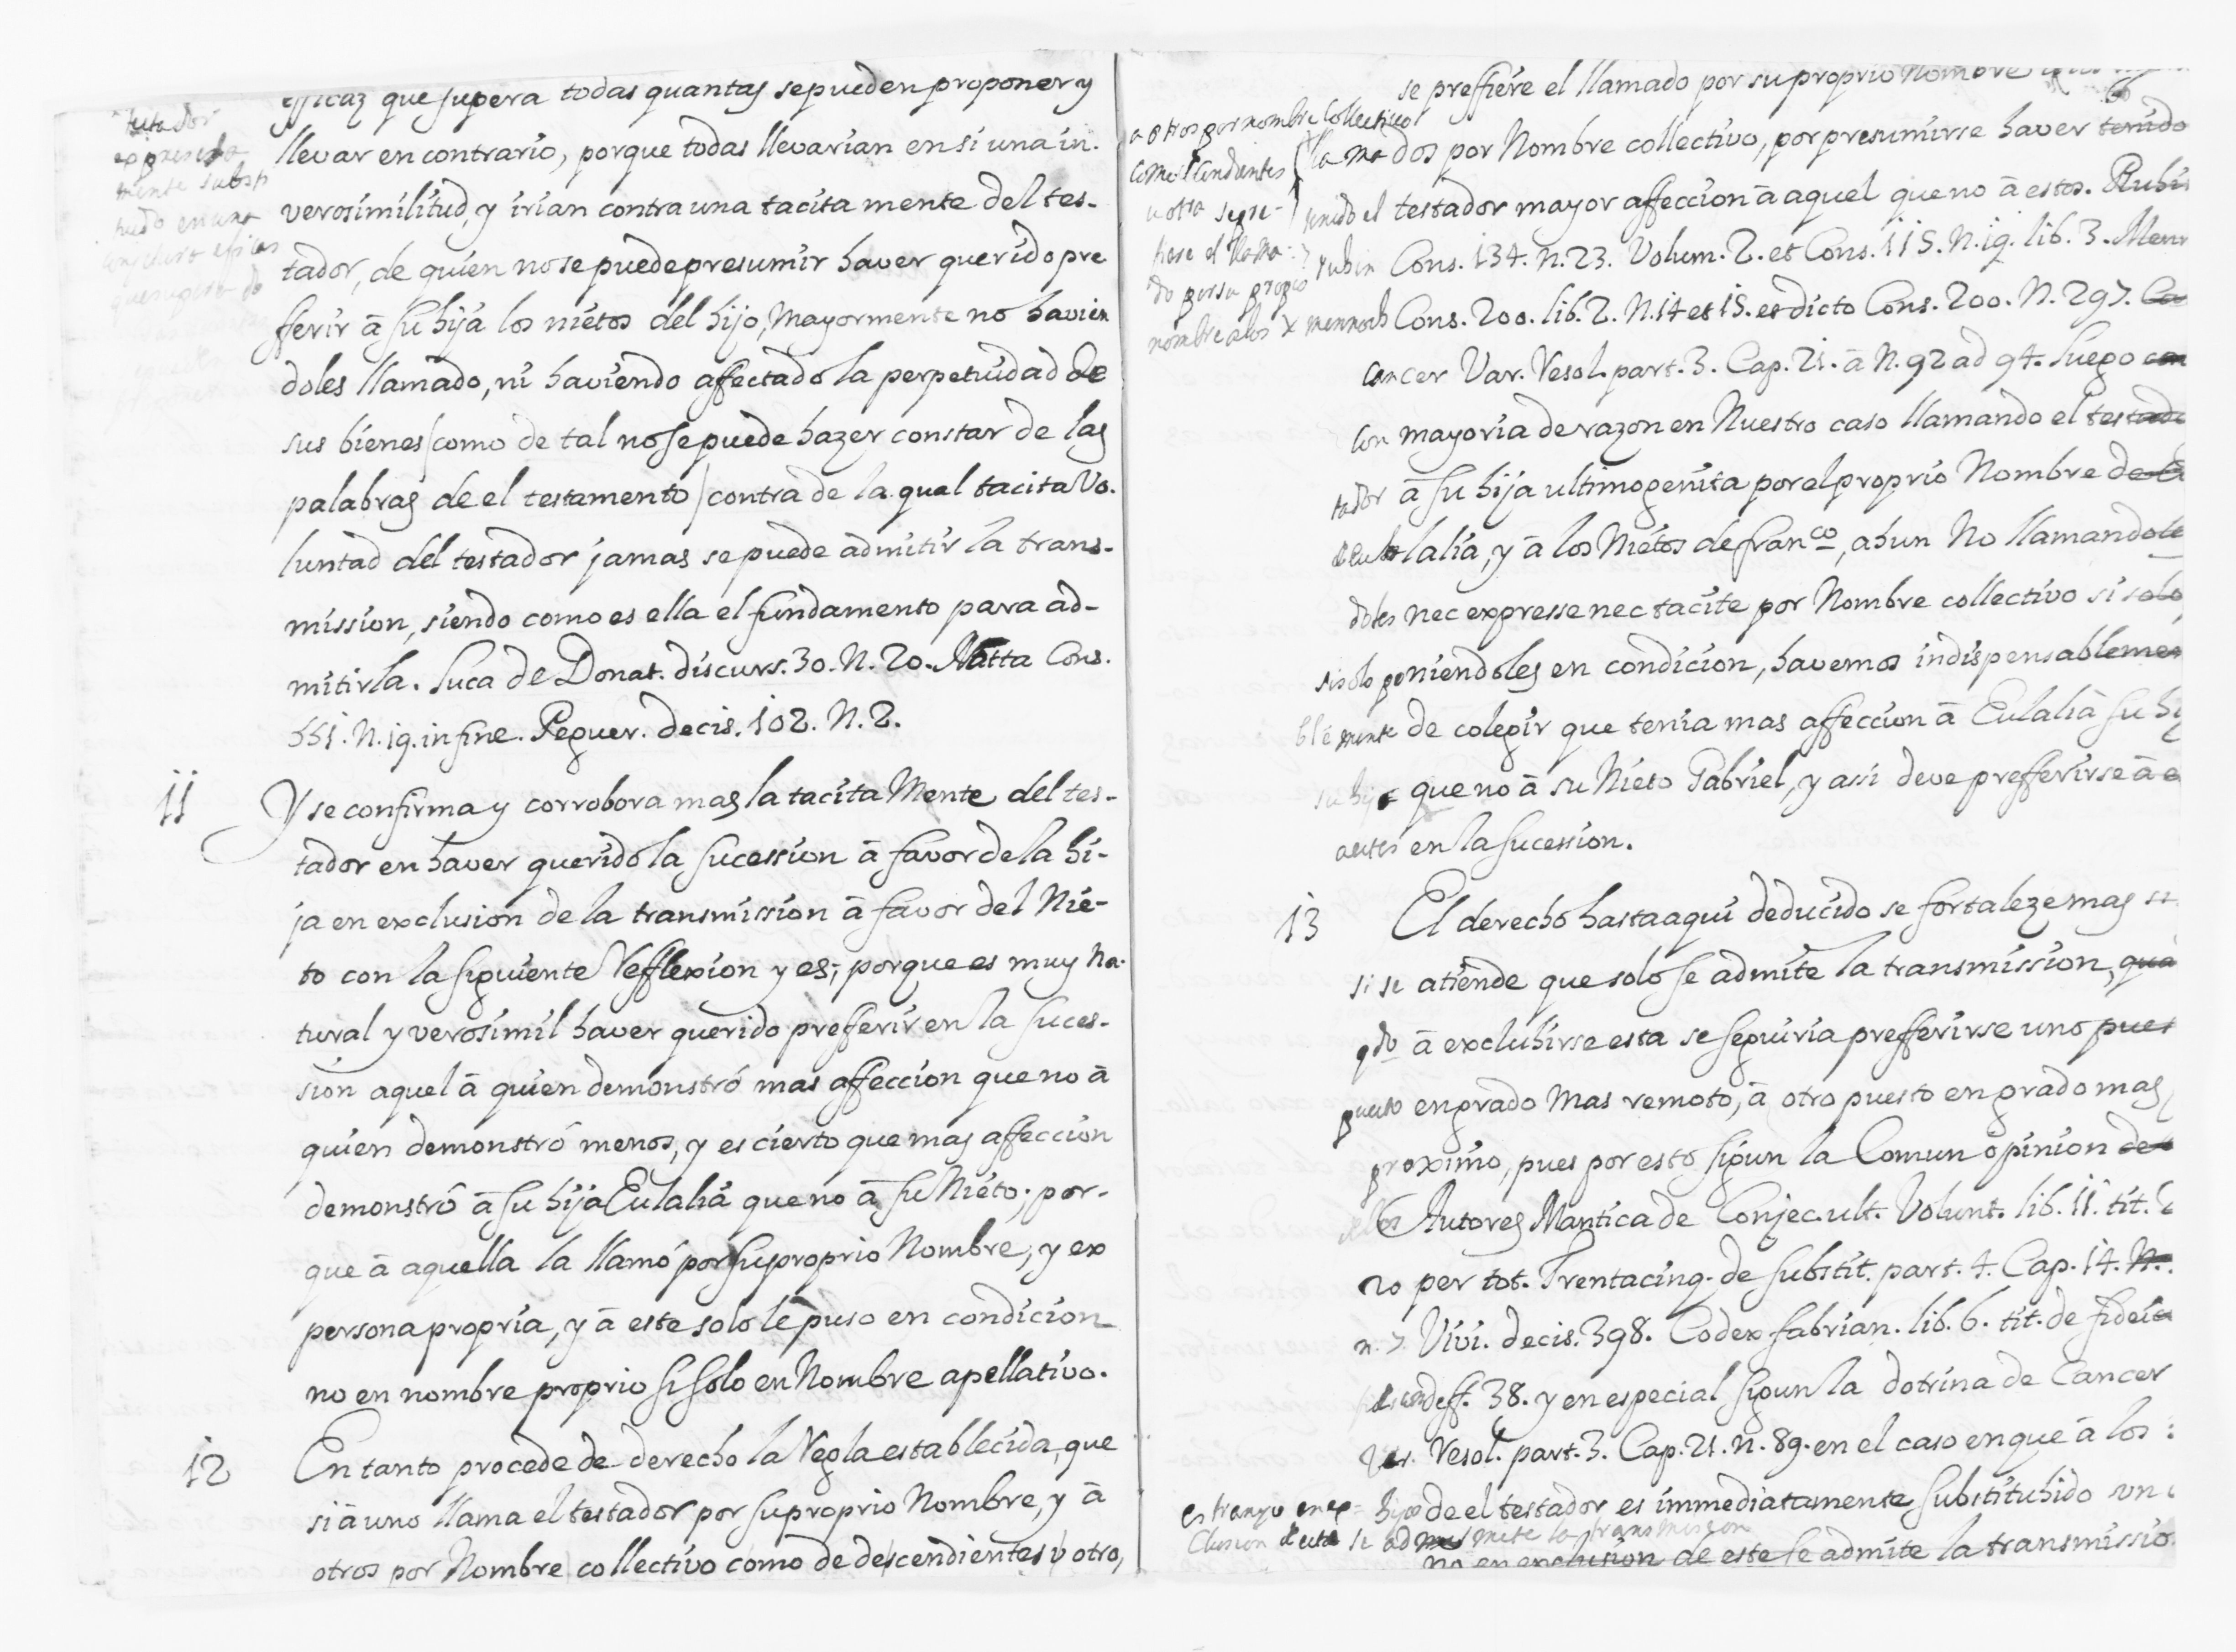 efficaz que supera todas quantas se pueden proponer y
llevar en contrario, porque todas llevarian en si una in-
verosimilitud, y irian contra una tacita mente del tes-
tador, de quien no se puede presumir haver querido pre
fferir â su hija los nietos del hijo, Mayormente no havien
doles llamado, ni haviendo affectado la perpetuidad de
sus bienes (como de tal no se puede hazer constar de las
palabras de el testamento) contra de la qual tacita Vo-
luntad del testador jamas se puede admitir la trans-
mission, siendo como es ella el fundamento para ad-
mitirla. Luca de Donat. discurs. 30. N. 20. Natta Cons.
551. N. 19. in fine. Peguer. decis. 102. N. 2.
11 Y se confirma y corrobora mas la tacita Mente del tes-
tador en haver querido la sucession â favor de la hi-
ja en exclusion de la transmission â favor del Nie-
to con la siguiente Refflexion y es; porque es muy na-
tural y verosimil haver querido prefferir en la suces-
sion aquel â quien demonstró mas affeccion que no â
quien demonstró menos, y es cierto que mas affeccion
demonstró â su hija Eulalia que no â su Nieto; por-
que â aquella la llamó por su proprio Nombre, y ex
persona propria, y â este solo le puso en condicion
no en nombre proprio si solo en Nombre apellativo.
12 En tanto procede de derecho la Regla establecida, que
si â uno llama el testador por su proprio Nombre, y â
otros por Nombre collectivo como de descendientes ú otro,
testador
expressa
mente
en una
se preffiere el llamado por su proprio Nombre
a otros por nombre Collectivo
como descendientes
u otra
nombre a los
llamados por Nombre collectivo, por presumirse haver tenido
tenido el testador mayor affeccion â aquel que no â estos. Rubin
rubin Cons. 134. N. 23. Volum. 2. et Cons. 115. N. 19. lib. 3. Men
mennoch Cons. 200. lib. 2. N. 14 et 15. et dicto Cons. 200. N. 297. Ca
Cancer Var. Resol. part. 3. Cap. 21. â N. 92 ad 94. Luego con
Con mayoria de razon en Nuestro caso llamando el testado
tador â su hija ultimogenita por el proprio Nombre de E
de Eulalia, y â los Nietos de Fran.co, ahun No llamandole
doles nec expresse nec tacite por Nombre collectivo si solo
si solo poniendoles en condicion, havemos indispensablemen
blemente de colegir que tenia mas affeccion â Eulalia su hi
su hija que no â su Nieto Gabriel, y assi deve prefferirse â e
a este en la sucession.
13 El derecho hasta aqui deducido se fortaleze mas si
si se atiende que solo se admite la transmission, qua
qdo â excluhirse esta se seguiria prefferirse uno pues
puesto en grado Mas remoto, â otro puesto en grado mas
proximo, pues por esto sigun la Comun opinion de
Autores Mantica de Conjec. ult. Volunt. lib. 11. tit.
20 per tot. Trentacinq. de Substit. part. 4. Cap. 14. N.
n. 7. Vivi. decis. 398. Codex fabrian. lib. 6. tit. de fideic
deff. 38. y en especial sigun la dotrina de Cancer
Var. Resol. part. 3. Cap. 21. n. 89. en el caso en que â los
hijos de el testador es immediatamente Substituhido un
estranyo en ex-
Clusion de este se admite la transmission
no en exclusion de este se admite la transmissio